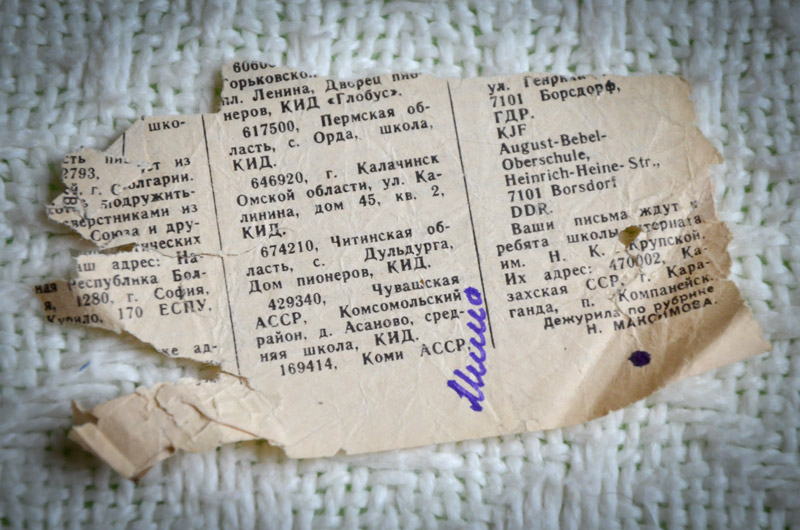 шко-
из
2793,
олгарии.
подружить-
верстниками из
Союза и дру-
тических
адрес: На-
Республика Бол-
1280, г. София,
170 ЕСПУ,
же ад-
Горьковско
пл. Ленина, Дворец пио-
неров, КИД «Глобус».
617500, Пермская об-
ласть, с. Орда, школа,
КИД.
646920, г. Калачинск
Омской области, ул. Ка-
линина, дом 45, кв. 2,
КИД.
674210, Читинская об-
ласть, с. Дульдурга,
Дом пионеров, КИД.
429340, Чувашская
АССР, Комсомольский
район, д. Асаново, сред-
няя школа, КИД.
169414, Коми АССР,
Миша
ул.
7101 Борсдорф,
ГДР.
KJF
August-Bebel-
Oberschule,
Heinrich-Heine-Str.,
7101 Borsdorf
DDR.
Ваши письма ждут
ребята школы
им. Н. К. Крупской.
Их адрес: 470002, Ка-
захская ССР, г. Кара-
ганда, п. Компанейск.
Дежурила по рубрике
Н. МАКСИМОВА.